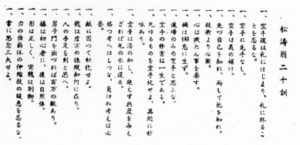 松涛館二十訓
一、空手道は礼に始まり、礼に終ること
を忘るな。
一、空手に先手なし。
一、空手は義の補け。
一、先づ自己を知れ、而して他を知れ。
一、技術より心術。
一、心は放たん事を要す。
一、禍は懈怠に生ず。
一、道場のみの空手と思ふな。
一、空手の修業は一生である。
一、凡ゆるものを空手化せよ、其処に妙
味あり。
一、空手は湯の如し、絶えず熱度を与え
ざれば元の水に還る。
一、勝つ考へはもつな、負けぬ考へは必
要。
一、敵に因って転化せよ。
一、戦は虚実の操縦如何に在り。
一、人の手足を剣と思へ。
一、男子門を出づれば百万の敵あり。
一、構は初心者に、後は自然体。
一、形は正しく、実戦は別物。
一、力の強弱、体の伸縮、技の緩急を忘るな。
一、常に思念工夫せよ。